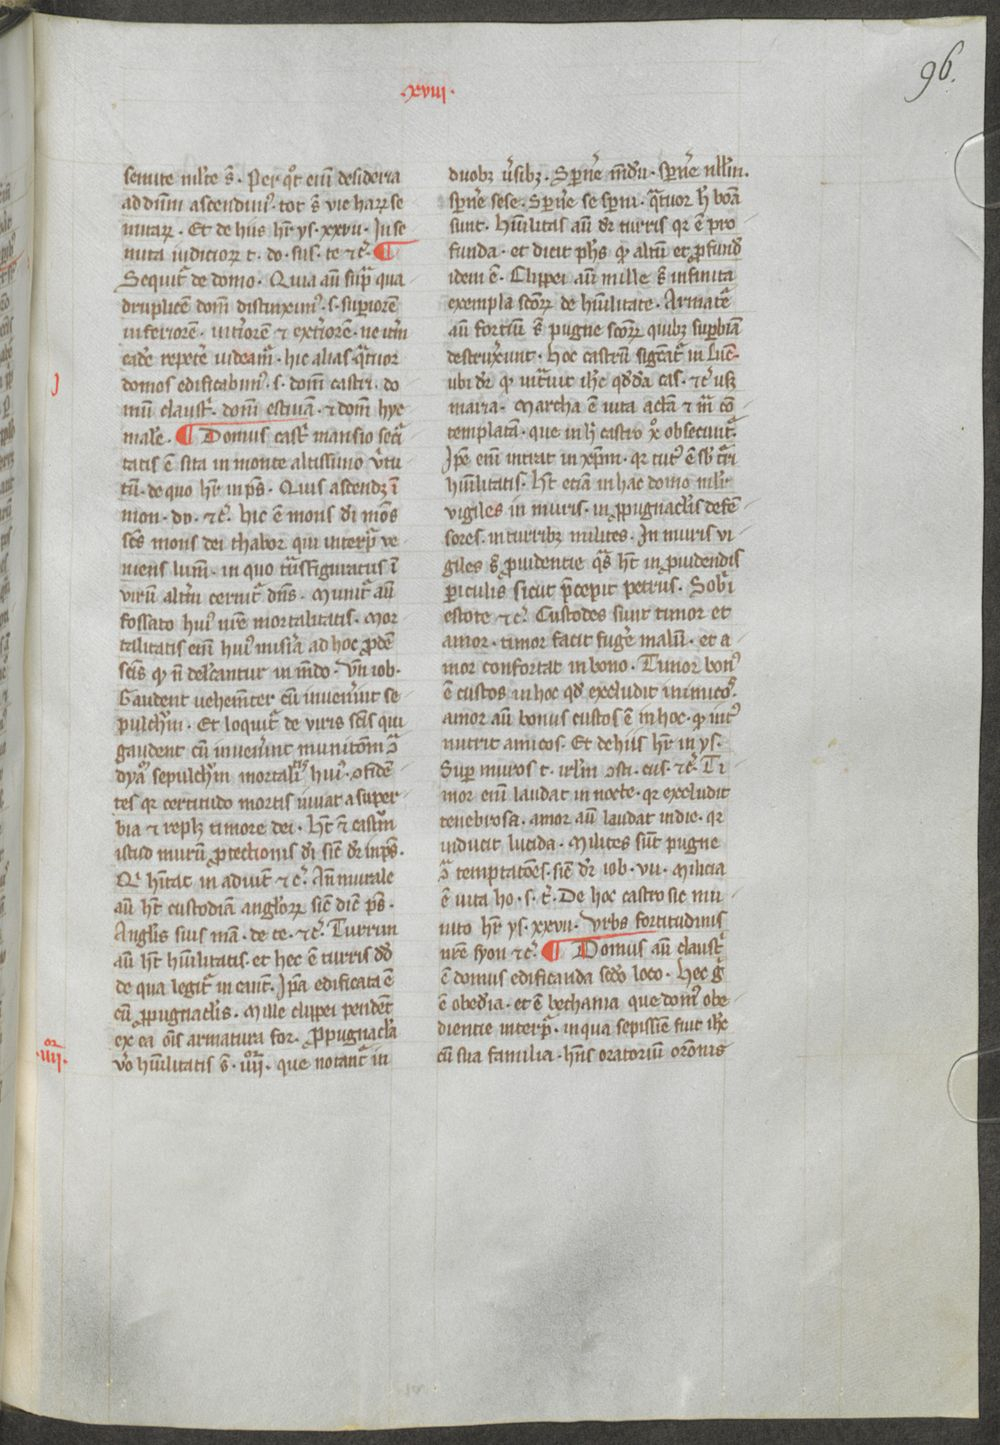 96.
.xviii.
semite nil'te s̄. Per qͦt enī desideria
ad dnm̄ ascendimꝰ. tot s̄ vie harꝝ se
mitarꝝ. Et de hiis hr̄ ys. xxvii. In se
mita iudiciorꝝ t. do. sus. te ⁊c̄. ¶
Sequit̄ de domo. Quia aū sup̄ qua
druplicē dom̄ distinximꝰ. s. superiorē
inferiorē. int̓iorē ⁊ ext̓iorē. ne it̓m
eadē repet̓e videam̄. hic alias qͣtuor
domos edificabimꝰ. s. dom̄ castri. do
mū claustͥ. dom̄ estiuā. ⁊ dom̄ hye
malē. ¶ Domus castͥ mansio sec̓i
tatis ē sita in monte altissimo v̓tu
tū. de quo hr̄ in pͣs. Quis ascendꝫ ī
mon. dn̄. ⁊c̄. hic ē mons dī mōs
scs̄ mons dei thabor qui int̓pr̄ ve
niens lum̄. in quo tͣnsfiguratus ī
virū alt̓m cernit̄ dns̄. Munit̄ aū
fossato huiꝰ nr̄e mortalitatis. Mor
talitatis enī huiꝰ mis̓ia ad hoc ꝓdē
scis̄ qͥ n̄ del'cantur in mn̄do. Vn̄ iob.
Gaudent uehem̄ter cū inven̓int se
pulchrū. Et loquit̄ de viris scīs qui
gaudent cū inven̓int munitōm ↄ̄
dyaͦ sepulchrm̄ mortalitͥs huiꝰ. ↄfidē
tes qr certitudo mortis iuuat a super
bia ⁊ replꝫ timore dei. Ht̄ ⁊ castrm̄
istud murū ꝓtectionis dī sic̄ dr̄ in ps̄.
Qͥ hītat in adiut̄ ⁊c̄. An̄murale
aū ht̄ custodiā angl'orꝝ sic̄ dic̄ ps̄.
Angl'is suis mā. de te. ⁊c̄. Turrim
aū ht̄ hūilitatis. et hec ē turris dd̄
de qua legit̄ in cant̄. Ip̄a edificata ē
cū ꝓpugnacl'is. Mille clypei pendēt
ex ea ois̄ armatura for. Ꝓpugnacl'a
v̓o hūilitatis s̄. iiiiͦr. que notant̄ in
.iiiiͦr.
duobꝫ v̓sibꝫ. Sꝑnē mn̄dū. sꝑnē nll'm.
sꝑnē sese. Sꝑnē se sꝑni. qͣtuor hͨ boā
sunt. Hūilitas aū dr̄ turris qr ē pro
funda. et dicit phs̄ qͥ altū et ꝓfund̄
idem ē. Clypei aū mille s̄ infinita
exempla scōrꝝ de hūilitate. Armat̄e
aū fortiū s̄ pugne scōrꝝ quibꝫ suꝑbiā
destruxerunt. Hoc castrū sigt̄cat̄ in luc̄.
ubi dr̄ qͥ int̓uit ih̄c qd̄dā cas. ⁊c̄ usqꝫ
maria. Martha ē vita actīa ⁊ mͣ cō
templatā. que in hͨ castro xͦ obsecunt̄.
Ip̄e enī intrat in xp̄m. qr tutꝰ ē sb̄ tͥri
hūilitatis. Ht̄ etiā in hac domo nil'r
vigiles in muris. in ꝓpugnacl'is defē
sores. in turribꝫ milites. In muris vi
giles s̄ ꝓuidentie qͣs ht̄ in ꝓuidendis
ꝑiculis sicut p̄cepit petrus. Sobͥi
estote ⁊c̄. Custodes sunt timor et
amor. timor facit fug̓e malū. et a
mor confortat in bono. Timor bonꝰ
ē custos in hoc qd̄ excludit inimicos̄.
amor aū bonus custos ē in hoc. qͥ intꝰ
nutrit amicos. Et de hiis hr̄ in ys.
Suꝑ muros t. irl'm ↄsti. cus. ⁊c̄. Ti
mor enī laudat in nocte. qr excludit
tenebrosa. amor aū laudat in die. qr
inducit lucida. Milites sūt pugne
ↄ̄ temptatōes. sic̄ dr̄ iob. vii. Milicia
ē vita ho. s. t̄. De hoc castro sic mu
nito hr̄ ys. xxvii. Vrbs fortitudinis
nr̄e syon ⁊c̄. ¶ Domus aū claustͥ
ē domus edificanda scd̄o loco. Hec gͣ
ē obed̄ia. et ē bethania que domꝰ obe
dientie int̓pr̄. in qua sepissīe fuit ih̄c
cū sua familia. hn̄s oratoriū orōnis